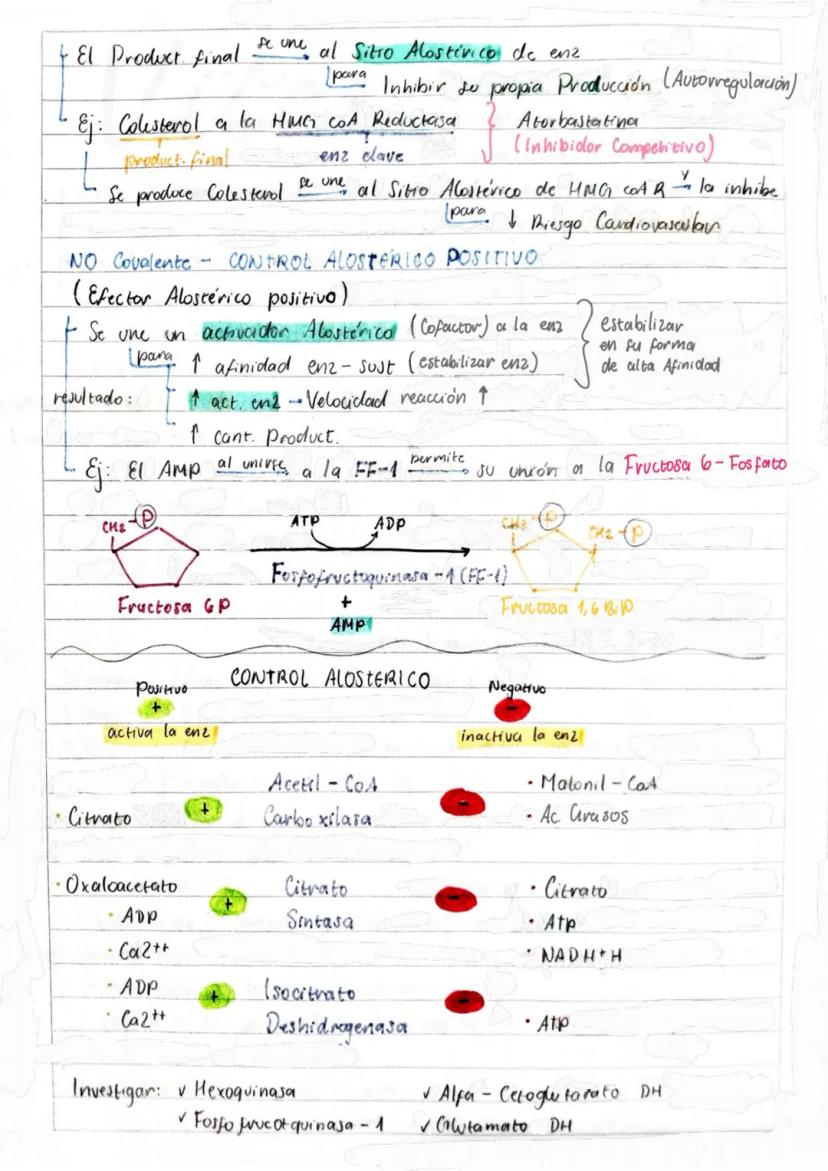 El Product. final se une al Sitio Alostérico de enz
para Inhibir su propia Producción (Autorregulación)
Ej: Colesterol a la HMG CoA Reductasa } Atorbastatina
product. final enz clave (Inhibidor Competitivo)
Se produce Colesterol se une al Sitio Alostérico de HMG CoA R y la inhibe
para ↓ Riesgo Cardiovascular
NO Covalente - CONTROL ALOSTÉRICO POSITIVO
(Efector Alostérico positivo)
Se une un activador Alostérico (Cofactor) a la enz } estabilizar
para ↑ afinidad enz - sust (estabilizar enz) en su forma
de alta Afinidad
resultado: ↑ act. enz → Velocidad reacción ↑
↑ cant. Product.
Ej: El AMP al unirse a la FF-1 permite su unión a la Fructosa 6-Fosfato
CH2-P ATP ADP CH2-P CH2-P
Fosfofructoquinasa -1 (FF-1)
Fructosa 6P + Fructosa 1,6 BiP
AMP
CONTROL ALOSTERICO
Positivo Negativo
+ -
activa la enz inactiva la enz
Acetil - CoA • Malonil - CoA
• Citrato + Carboxilasa - • Ac. Grasos
• Oxaloacetato + Citrato - • Citrato
• ADP Sintasa • Atp
• Ca2++ • NADH+H
• ADP + Isocitrato -
• Ca2++ Deshidrogenasa • Atp
Investigar: ✓ Hexoquinasa ✓ Alfa - Cetoglutorato DH
✓ Fosfofrucotquinasa - 1 ✓ Glutamato DH